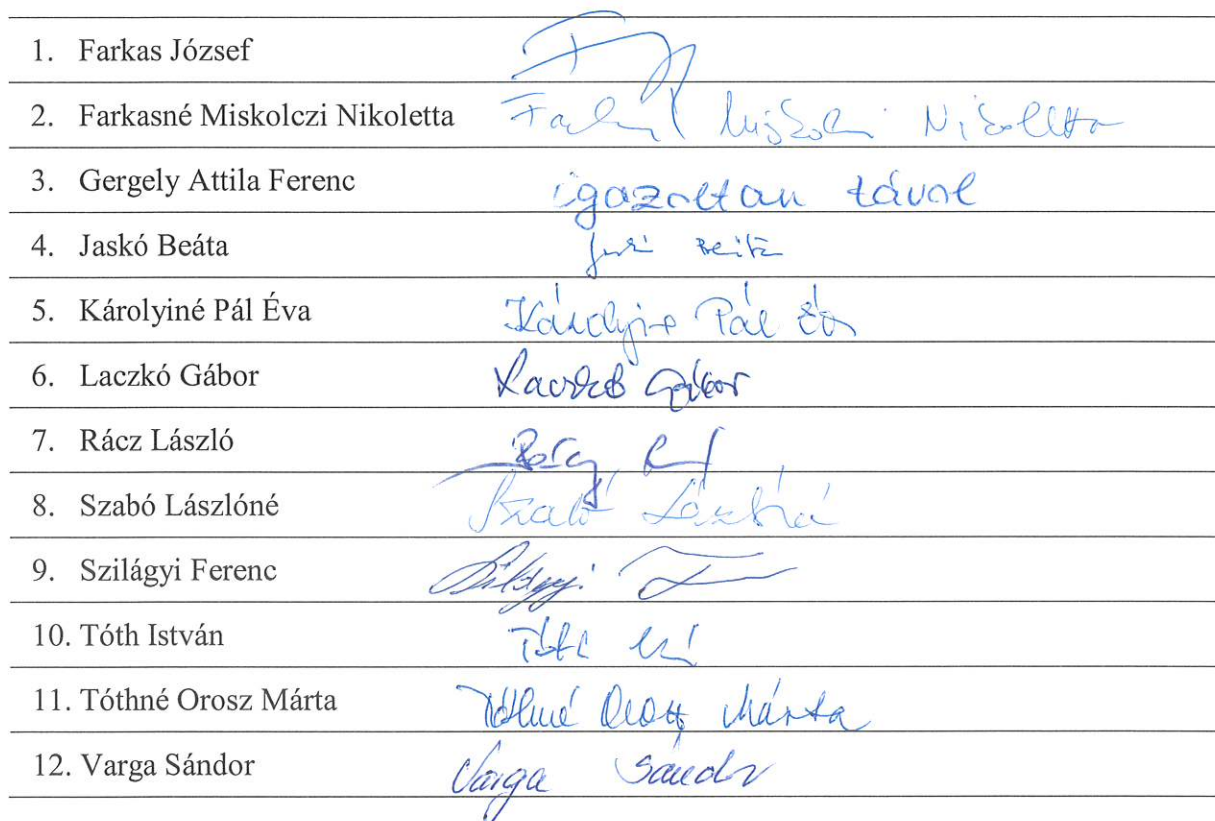 1. Farkas József
2. Farkasné Miskolczi Nikoletta Nikoletta
3. Gergely Attila Ferenc igazoltan távol
4. Jaskó Beáta
5. Károlyiné Pál Éva Károlyiné Pál Éva
6. Laczkó Gábor Laczkó Gábor
7. Rácz László
8. Szabó Lászlóné Szabó Lászlóné
9. Szilágyi Ferenc Szilágyi
10. Tóth István Tóth
11. Tóthné Orosz Márta Tóthné Orosz Márta
12. Varga Sándor Varga Sándor